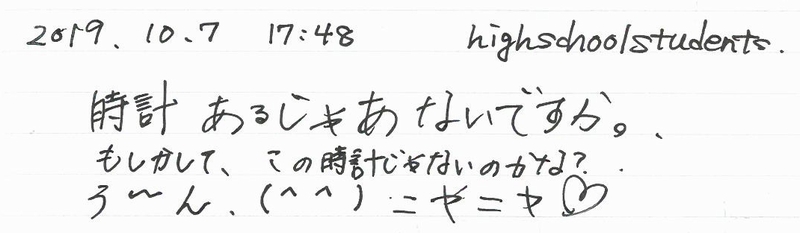 2019. 10. 7 17:48 highschoolstudents.
時計 あるじゃあないですか。、
もしかして、この時計じゃないのかな?.
う〜ん、(^ ^) ニヤニヤ♡